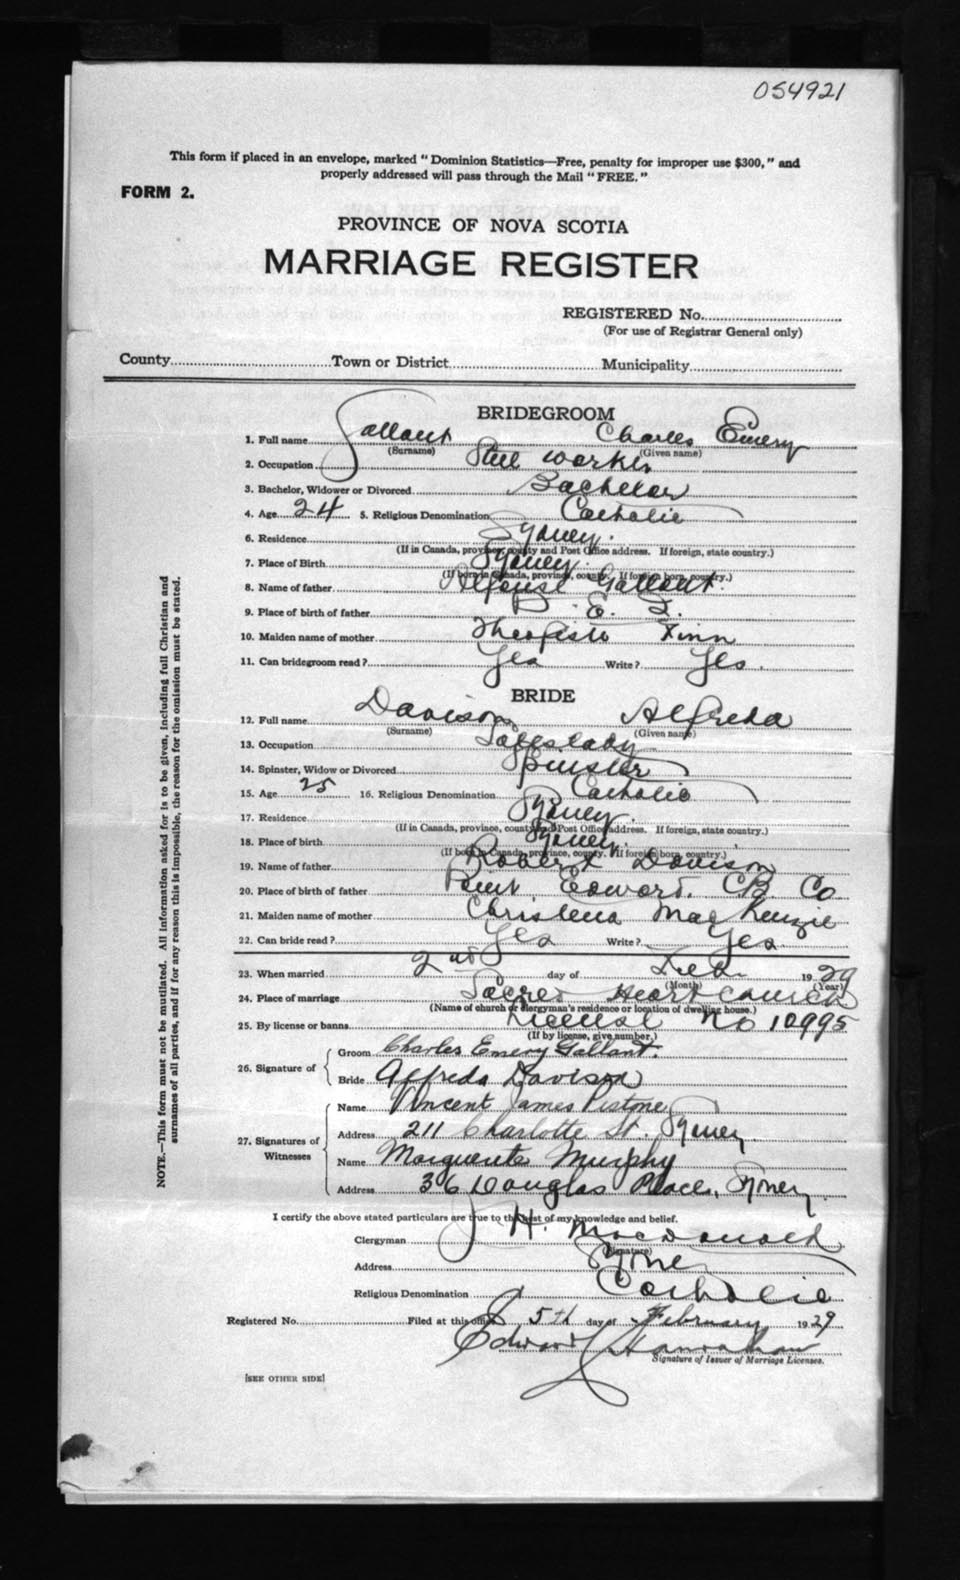 054921
This form if placed in an envelope, marked "Dominion Statistics—Free, penalty for improper use $300," and
properly addressed will pass through the Mail "FREE."
FORM 2.
PROVINCE OF NOVA SCOTIA
MARRIAGE REGISTER
REGISTERED No.
(For use of Registrar General only)
County Town or District Municipality
BRIDEGROOM
1. Full name Gallant Charles Emery
(Surname) (Given name)
2. Occupation Steel worker
3. Bachelor, Widower or Divorced Bachelor
4. Age 24 5. Religious Denomination Catholic
6. Residence Sydney.
(If in Canada, province, county and Post Office address. If foreign, state country.)
7. Place of Birth Sydney.
(If born in Canada, province, county. If foreign born, country.)
8. Name of father Alfonse Gallant.
9. Place of birth of father P. E. I.
10. Maiden name of mother Finn
11. Can bridegroom read? Yes Write? Yes.
BRIDE
12. Full name Davison Alfreda
(Surname) (Given name)
13. Occupation Saleslady
14. Spinster, Widow or Divorced Spinster
15. Age 25 16. Religious Denomination Catholic
17. Residence Sydney.
(If in Canada, province, county and Post Office address. If foreign, state country.)
18. Place of birth Sydney.
(If born in Canada, province, county. If foreign born, country.)
19. Name of father Robert Davison
20. Place of birth of father Point Edward. C.B. Co
21. Maiden name of mother Christena MacKenzie
22. Can bride read? Yes Write? Yes.
23. When married 2nd day of Feb. 1929
(Month) (Year)
24. Place of marriage Sacred Heart Church
(Name of church or clergyman's residence or location of dwelling house.)
25. By license or banns License No 10995
(If by license, give number.)
26. Signature of Groom Charles Emery Gallant.
Bride Alfreda Davison
27. Signatures of Witnesses Name Vincent James Pistone
Address 211 Charlotte St. Sydney
Name Marguerite Murphy
Address 36 Douglas Place, Sydney.
I certify the above stated particulars are true to the best of my knowledge and belief.
Clergyman J. H. MacDonald
(Signature)
Address Sydney
Religious Denomination Catholic
Registered No. Filed at this office 5th day of February 1929
Edward Hanrahan
Signature of Issuer of Marriage Licenses.
[SEE OTHER SIDE]
NOTE.—This form must not be mutilated. All information asked for is to be given, including full Christian and
surnames of all parties, and if for any reason this is impossible, the reason for the omission must be stated.